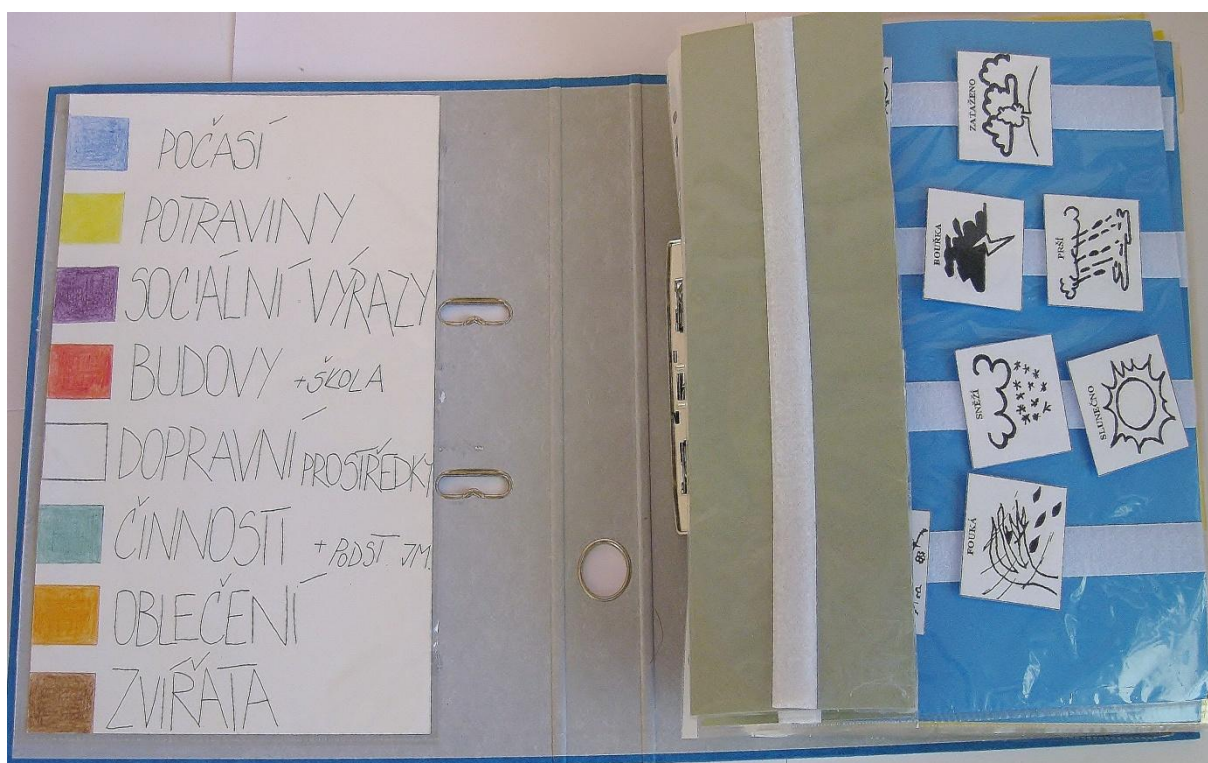 POČASÍ
POTRAVINY
SOCIÁLNÍ VÝRAZY
BUDOVY + ŠKOLA
DOPRAVNÍ PROSTŘEDKY
ČINNOSTI + PODST. JM.
OBLEČENÍ
ZVÍŘATA
ZATAŽENO
BOUŘKA
PRŠÍ
SNĚŽÍ
SLUNEČNO
FOUKÁ